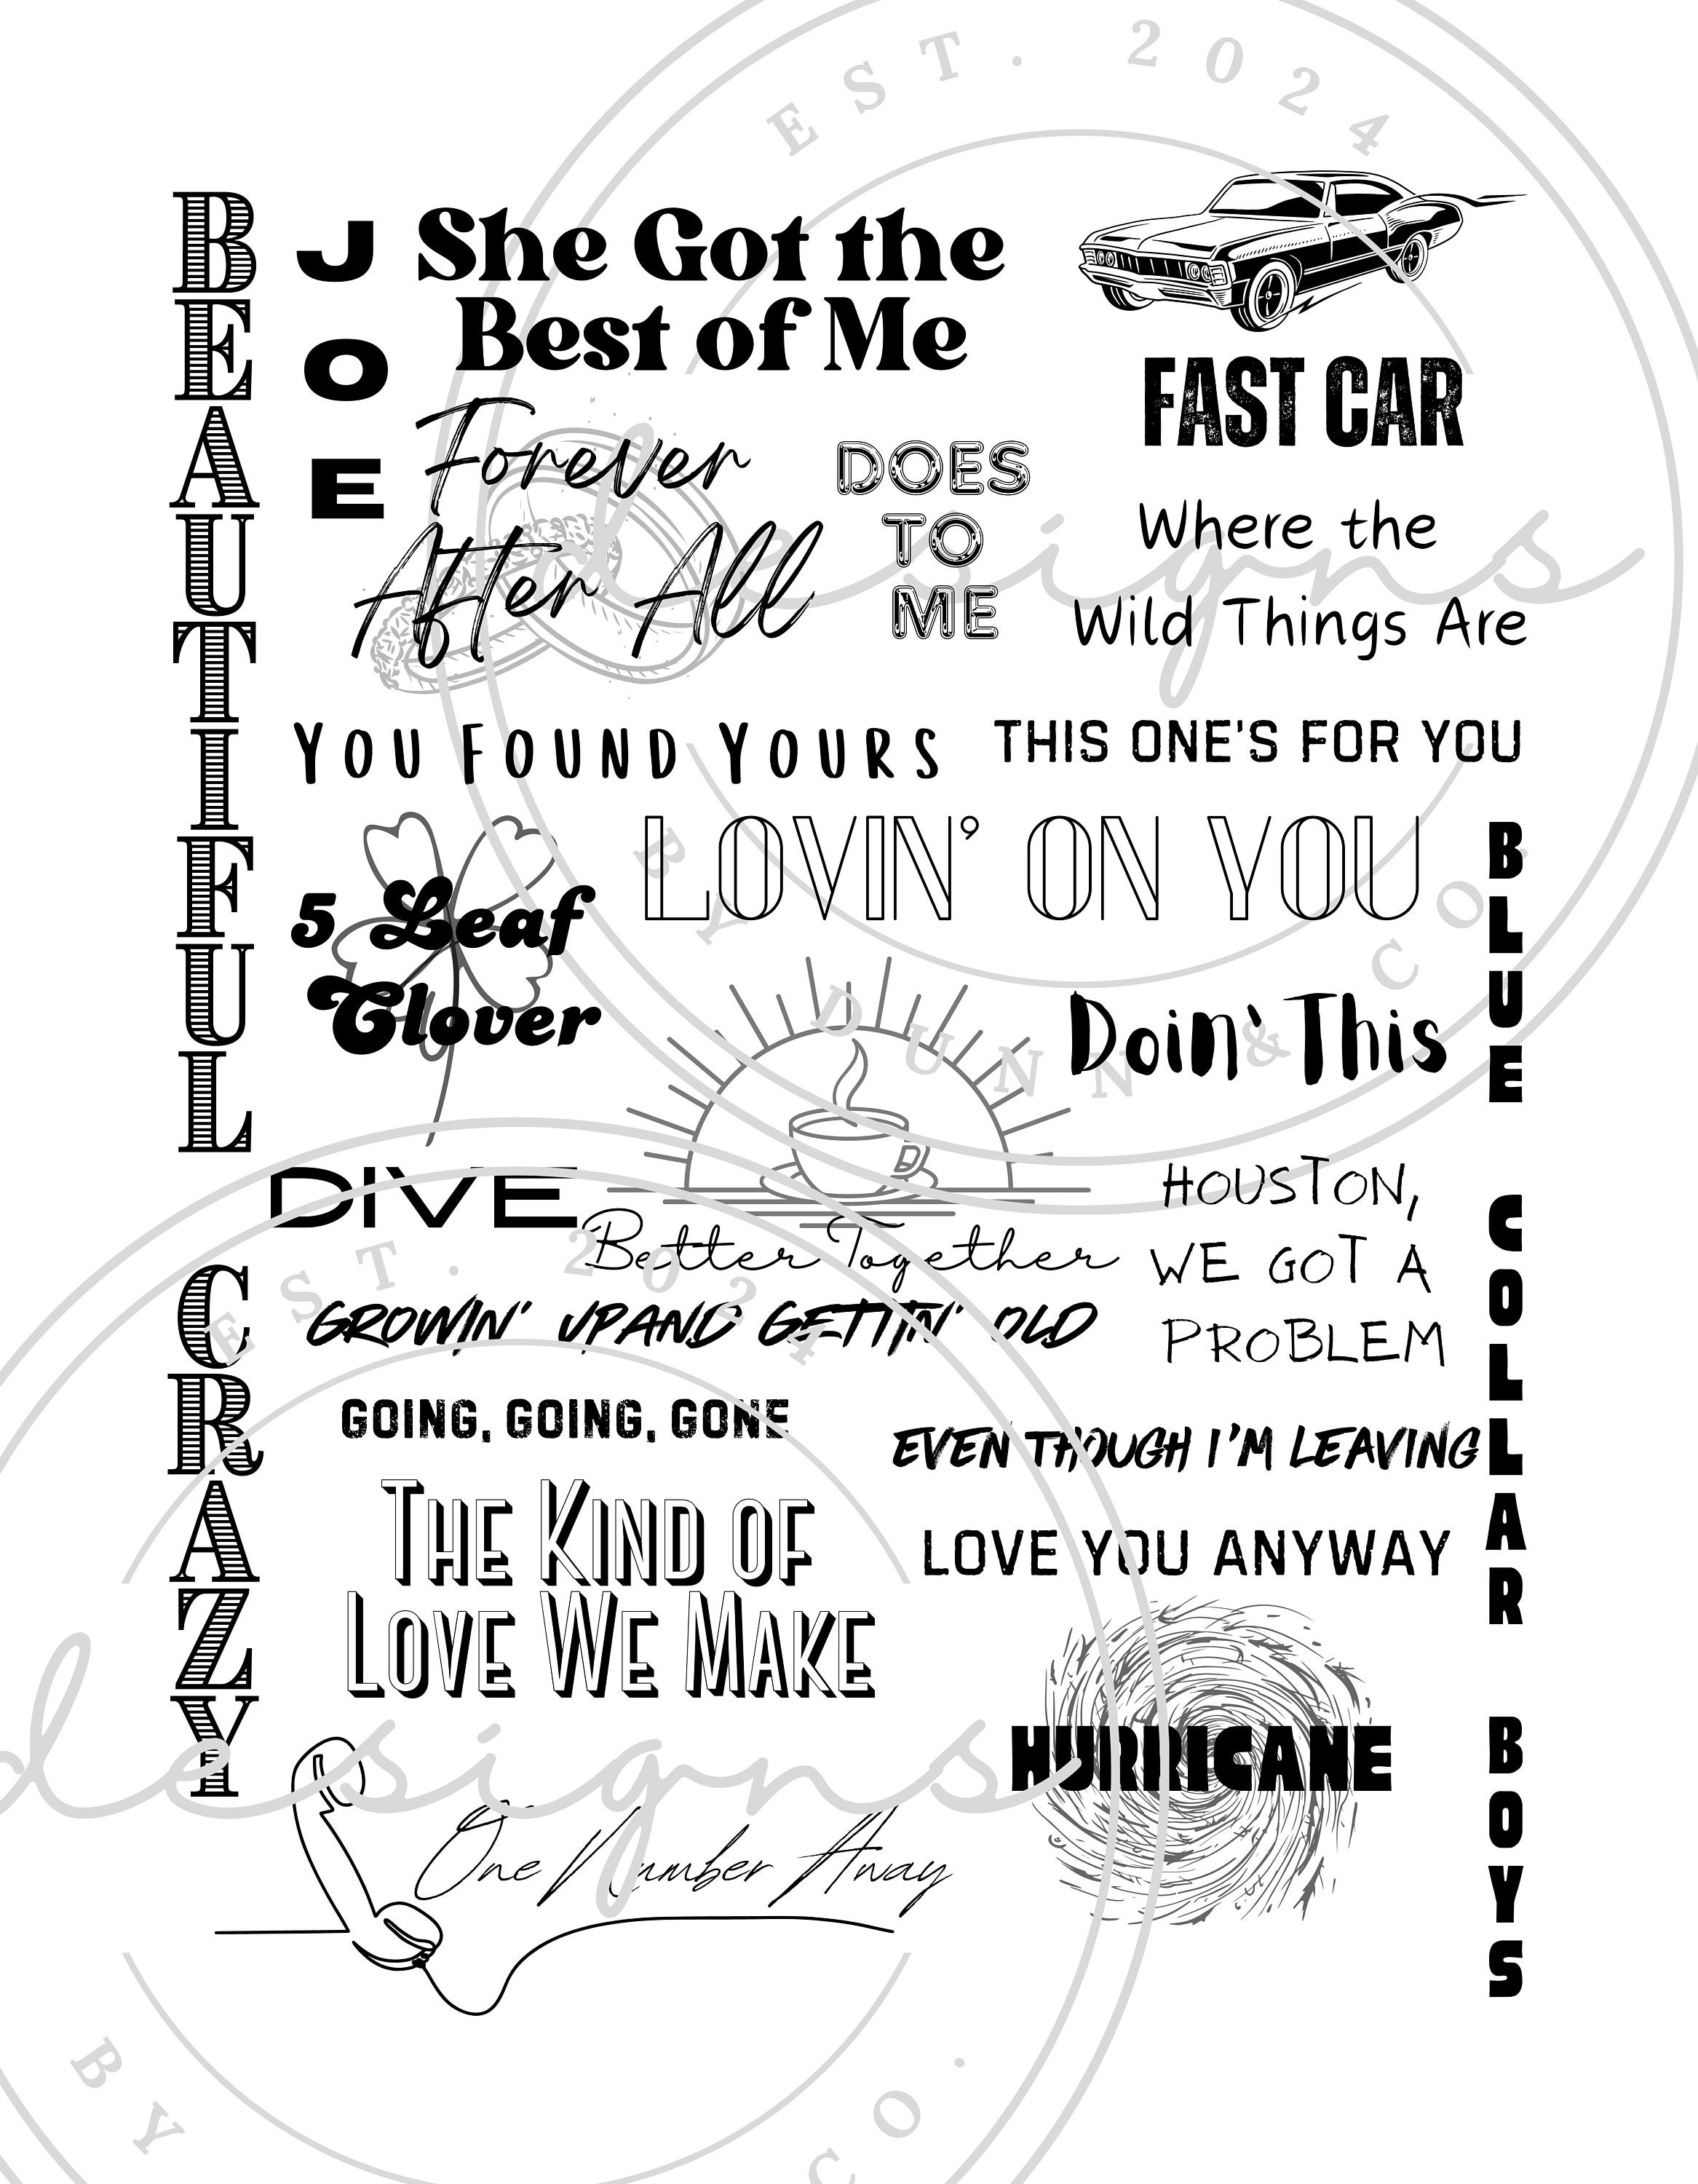 EST. 2024
BEAUTIFUL
CRAZY
JOE
She Got the
Best of Me
FAST CAR
Forever
After All
DOES
TO
ME
Where the
Wild Things Are
designs
YOU FOUND YOURS
THIS ONE'S FOR YOU
LOVIN' ON YOU
5 Leaf
Clover
BY DUNN & CO.
Doin' This
BLUE
COLLAR
BOYS
DIVE
Better Together
HOUSTON,
WE GOT A
PROBLEM
EST. 2024
GROWIN' UP AND GETTIN' OLD
GOING, GOING, GONE
EVEN THOUGH I'M LEAVING
THE KIND OF
LOVE WE MAKE
LOVE YOU ANYWAY
HURRICANE
designs
One Number Away
BY CO.